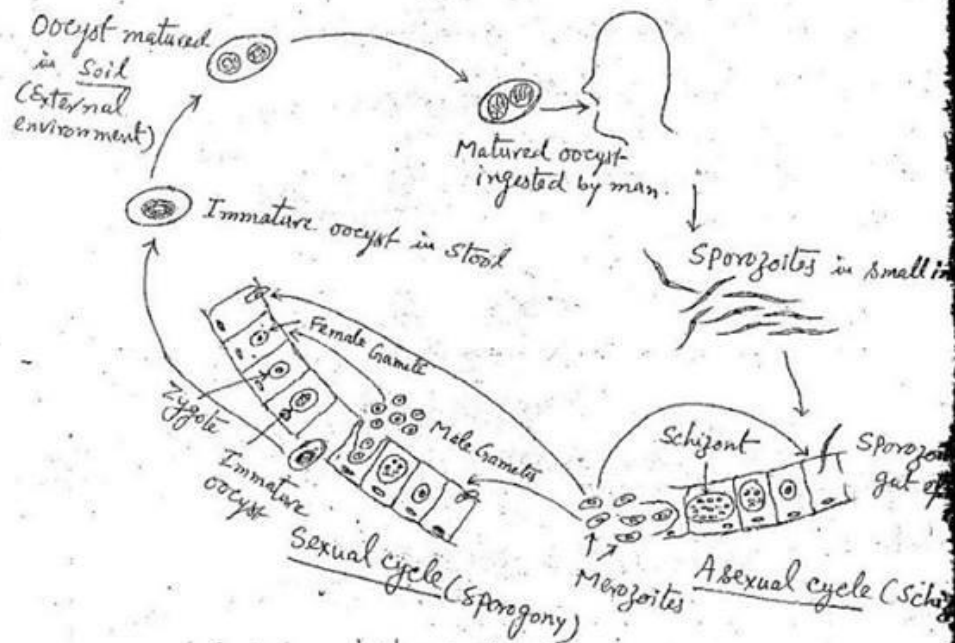 Oocyst matured
in Soil
(External
environment)
Matured oocyst
ingested by man.
Immature oocyst in Stool
Sporozoites in small in
Female Gamete
Zygote
Immature
oocyst
Male Gametes
Schizont
Sporozoi
gut ep
Merozoites
Sexual cycle (Sporogony)
Asexual cycle (Schiz